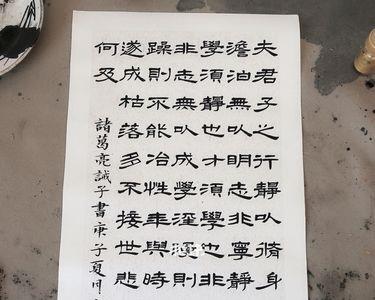 夫君子之行靜以脩身
澹泊無以明志非寧靜
學須靜也才須學也非
非志無以成學淫慢則
躁則不能冶性年與時
遂成枯落多不接世悲
何及
諸葛亮誡子書庚子夏月